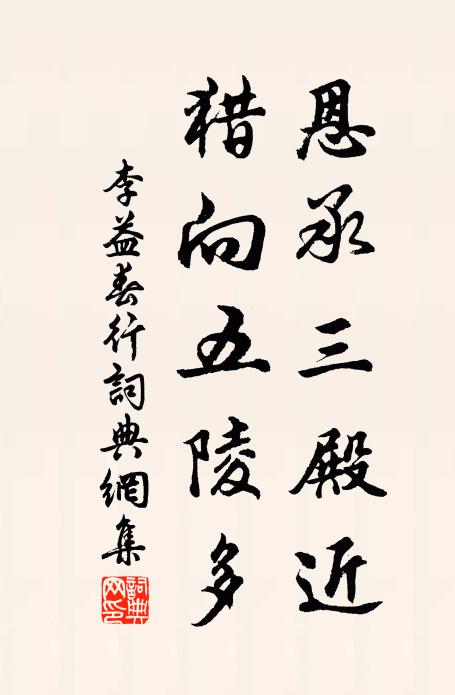 恩承三殿近
猎向五陵多
李益春行詞典網集
詞典网印